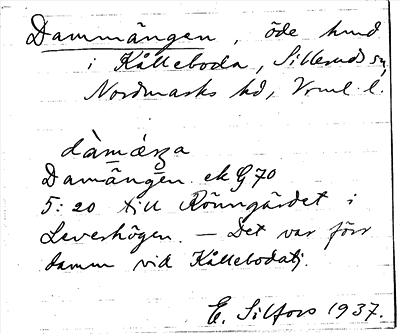 Dammängen, öde hmd
i Källeboda, Sillerud sn,
Nordmarks hd, Vrml. l.
dàmǽŋa
Damängen. ek G 70
5:20 till Rönngärdet i
Leverhögen. — Det var förr
damm vid Källebodatj.
E. Silfors 1937.